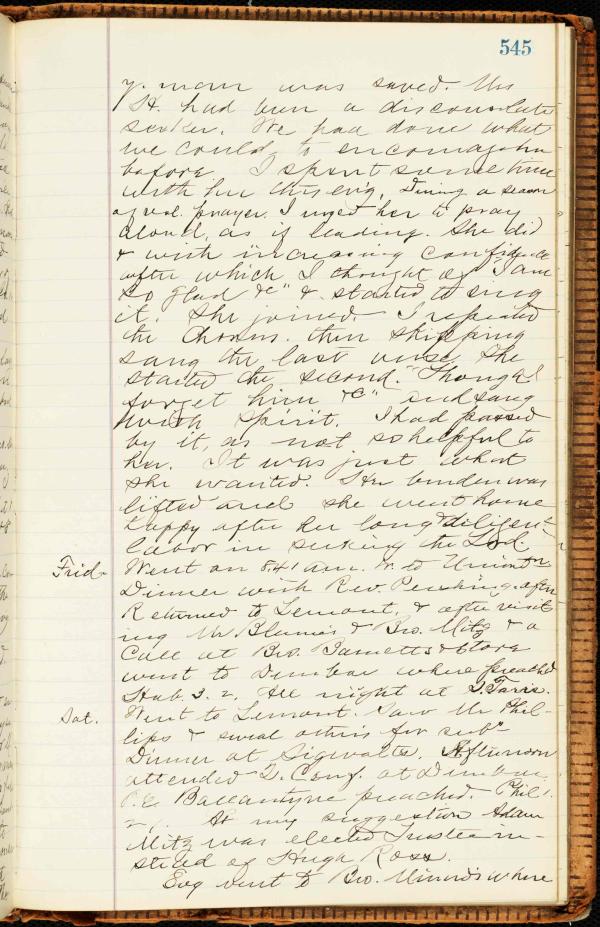 545
y. man was saved. Mrs
H. had been a disconsolate
seeker. We had done what
we could to encourage her
before. I spent some time
with her this ev'g. During a season
of vol. prayer, I urged her to pray
aloud, as if leading. She did
& with increasing confidence
after which I thought of "I am
so glad &c" & started to sing
it. She joined. I repeated
the Chorus. then skipping
sang the last verse. She
started the second. "Though I
forget him &c" and sang
with spirit. I had passed
by it, as not so helpful to
her. It was just what
she wanted. Her burden was
lifted and she went home
happy after her long & diligent
labor in seeking the Lord
Frid. Went on 8.41 a.m. to
Dinner with Rev. after
Returned to Lemont, & after visit-
ing Mr & Bro. Mitz & a
call at Bro. Barnetts Store
went to Dunbar where preached
Hab. 3. 2. All night at
Sat. Went to Lemont. Saw Mr Phil-
lips & several others for sub^n
Dinner at Sigwalts. Afternoon
attended Q. Conf. at Dunbar.
P.E. Ballantyne preached. Phil 1.
21. At my suggestion Adam
Mitz was elected Trustee in-
stead of Hugh Ross.
Evg went to Bro. Minards where